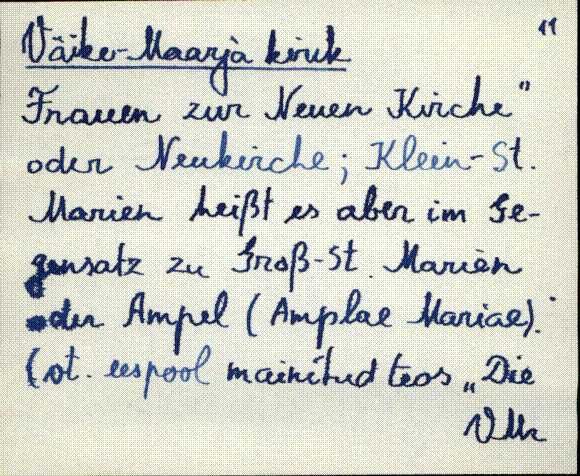 11
Väike-Maarja kirik
Frauen zur Neuen Kirche"
oder Neukirche; Klein-St.
Marien heißt es aber im Ge-
gensatz zu Groß-St. Marien
oder Ampel (Amplae Mariae).
(ot. eespool mainitud teos „Die